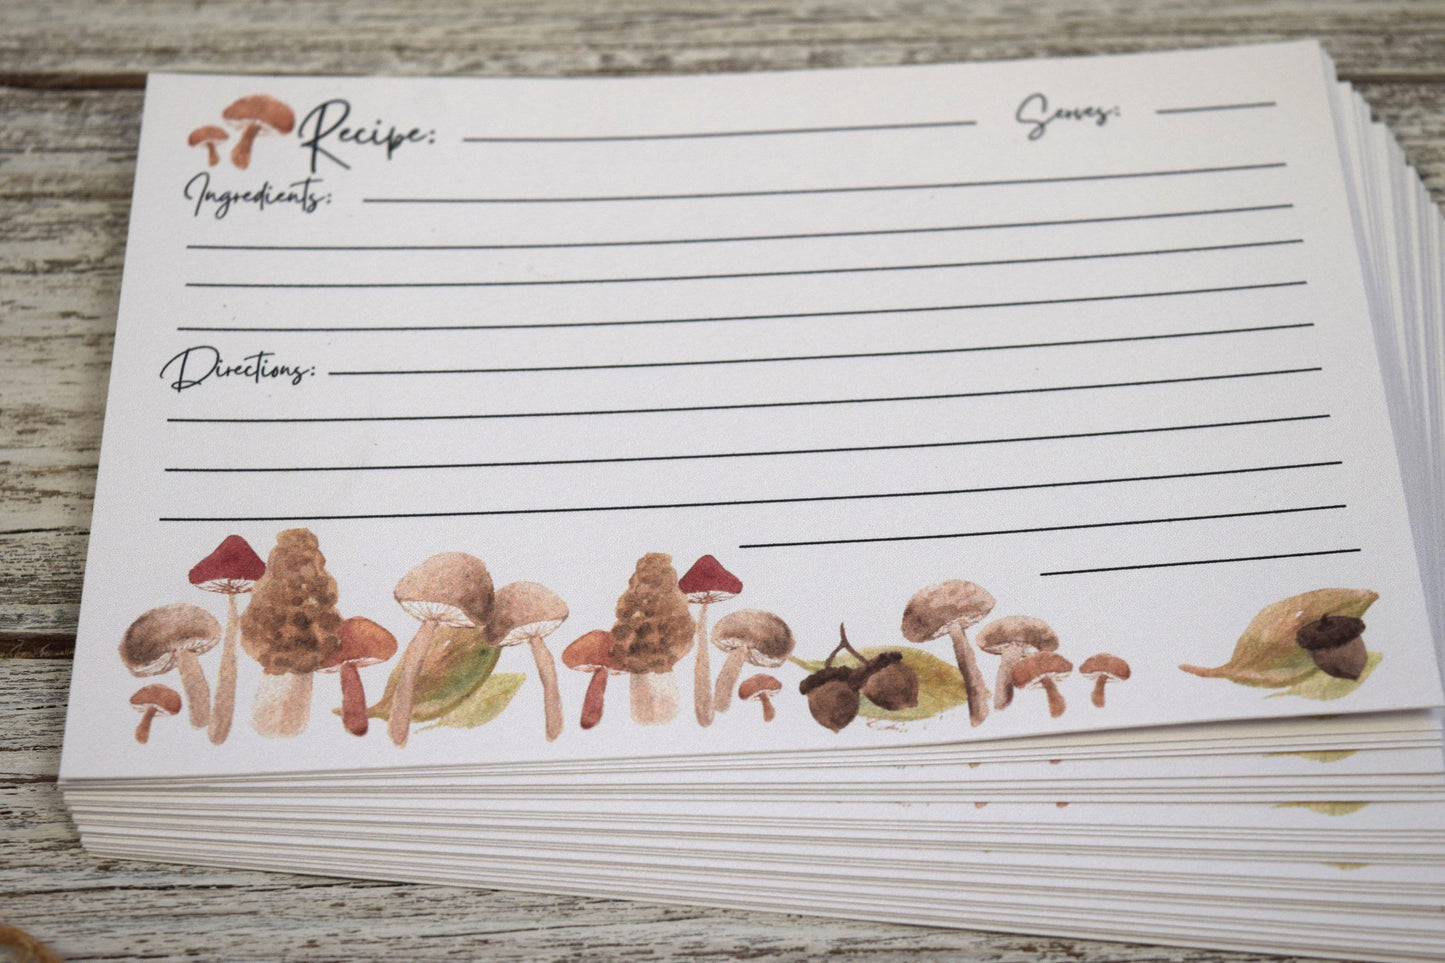 Recipe: Serves:
Ingredients:
Directions: